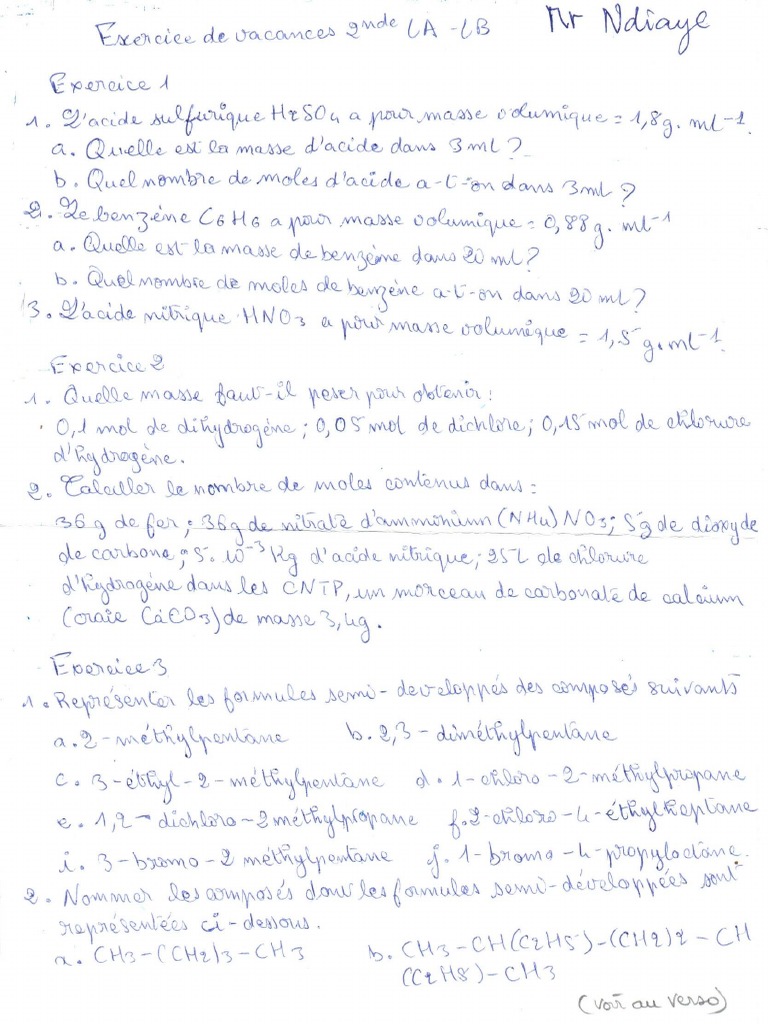 Exercice de vacances 2nde LA - LB Mr Ndiaye
Exercice 1
1. L'acide sulfurique H2SO4 a pour masse volumique = 1,8g. ml-1.
a. Quelle est la masse d'acide dans 3ml ?
b. Quel nombre de moles d'acide a-t-on dans 3ml ?
2. Le benzène C6H6 a pour masse volumique = 0,88g. ml-1
a. Quelle est la masse de benzène dans 20 ml ?
b. Quel nombre de moles de benzène a-t-on dans 20 ml ?
3. L'acide nitrique HNO3 a pour masse volumique = 1,5 g.ml-1.
Exercice 2
1. Quelle masse faut-il peser pour obtenir :
0,1 mol de dihydrogène ; 0,05 mol de dichlore ; 0,15 mol de chlorure
d'hydrogène.
2. Calculer le nombre de moles contenus dans :
36g de fer ; 36g de nitrate d'ammonium (NH4) NO3 ; 5g de dioxyde
de carbone ; 5. 10-3 Kg d'acide nitrique ; 25L de chlorure
d'hydrogène dans les CNTP, un morceau de carbonate de calcium
(craie CaCO3) de masse 3,4g.
Exercice 3
1. Représenter les formules semi-developpés des composés suivants
a. 2-méthylpentane b. 2,3-diméthylpentane
c. 3-éthyl-2-méthylpentane d. 1-chloro-2-méthylpropane
e. 1,2-dichloro-2méthylpropane f. 2-chloro-4-éthylheptane
i. 3-bromo-2 méthylpentane j. 1-bromo-4-propyloctane.
2. Nommer les composés dont les formules semi-développées sont
représentées ci-dessous.
a. CH3-(CH2)3-CH3 b. CH3-CH(C2H5)-(CH2)2-CH
(C2H5)-CH3
(voir au verso)